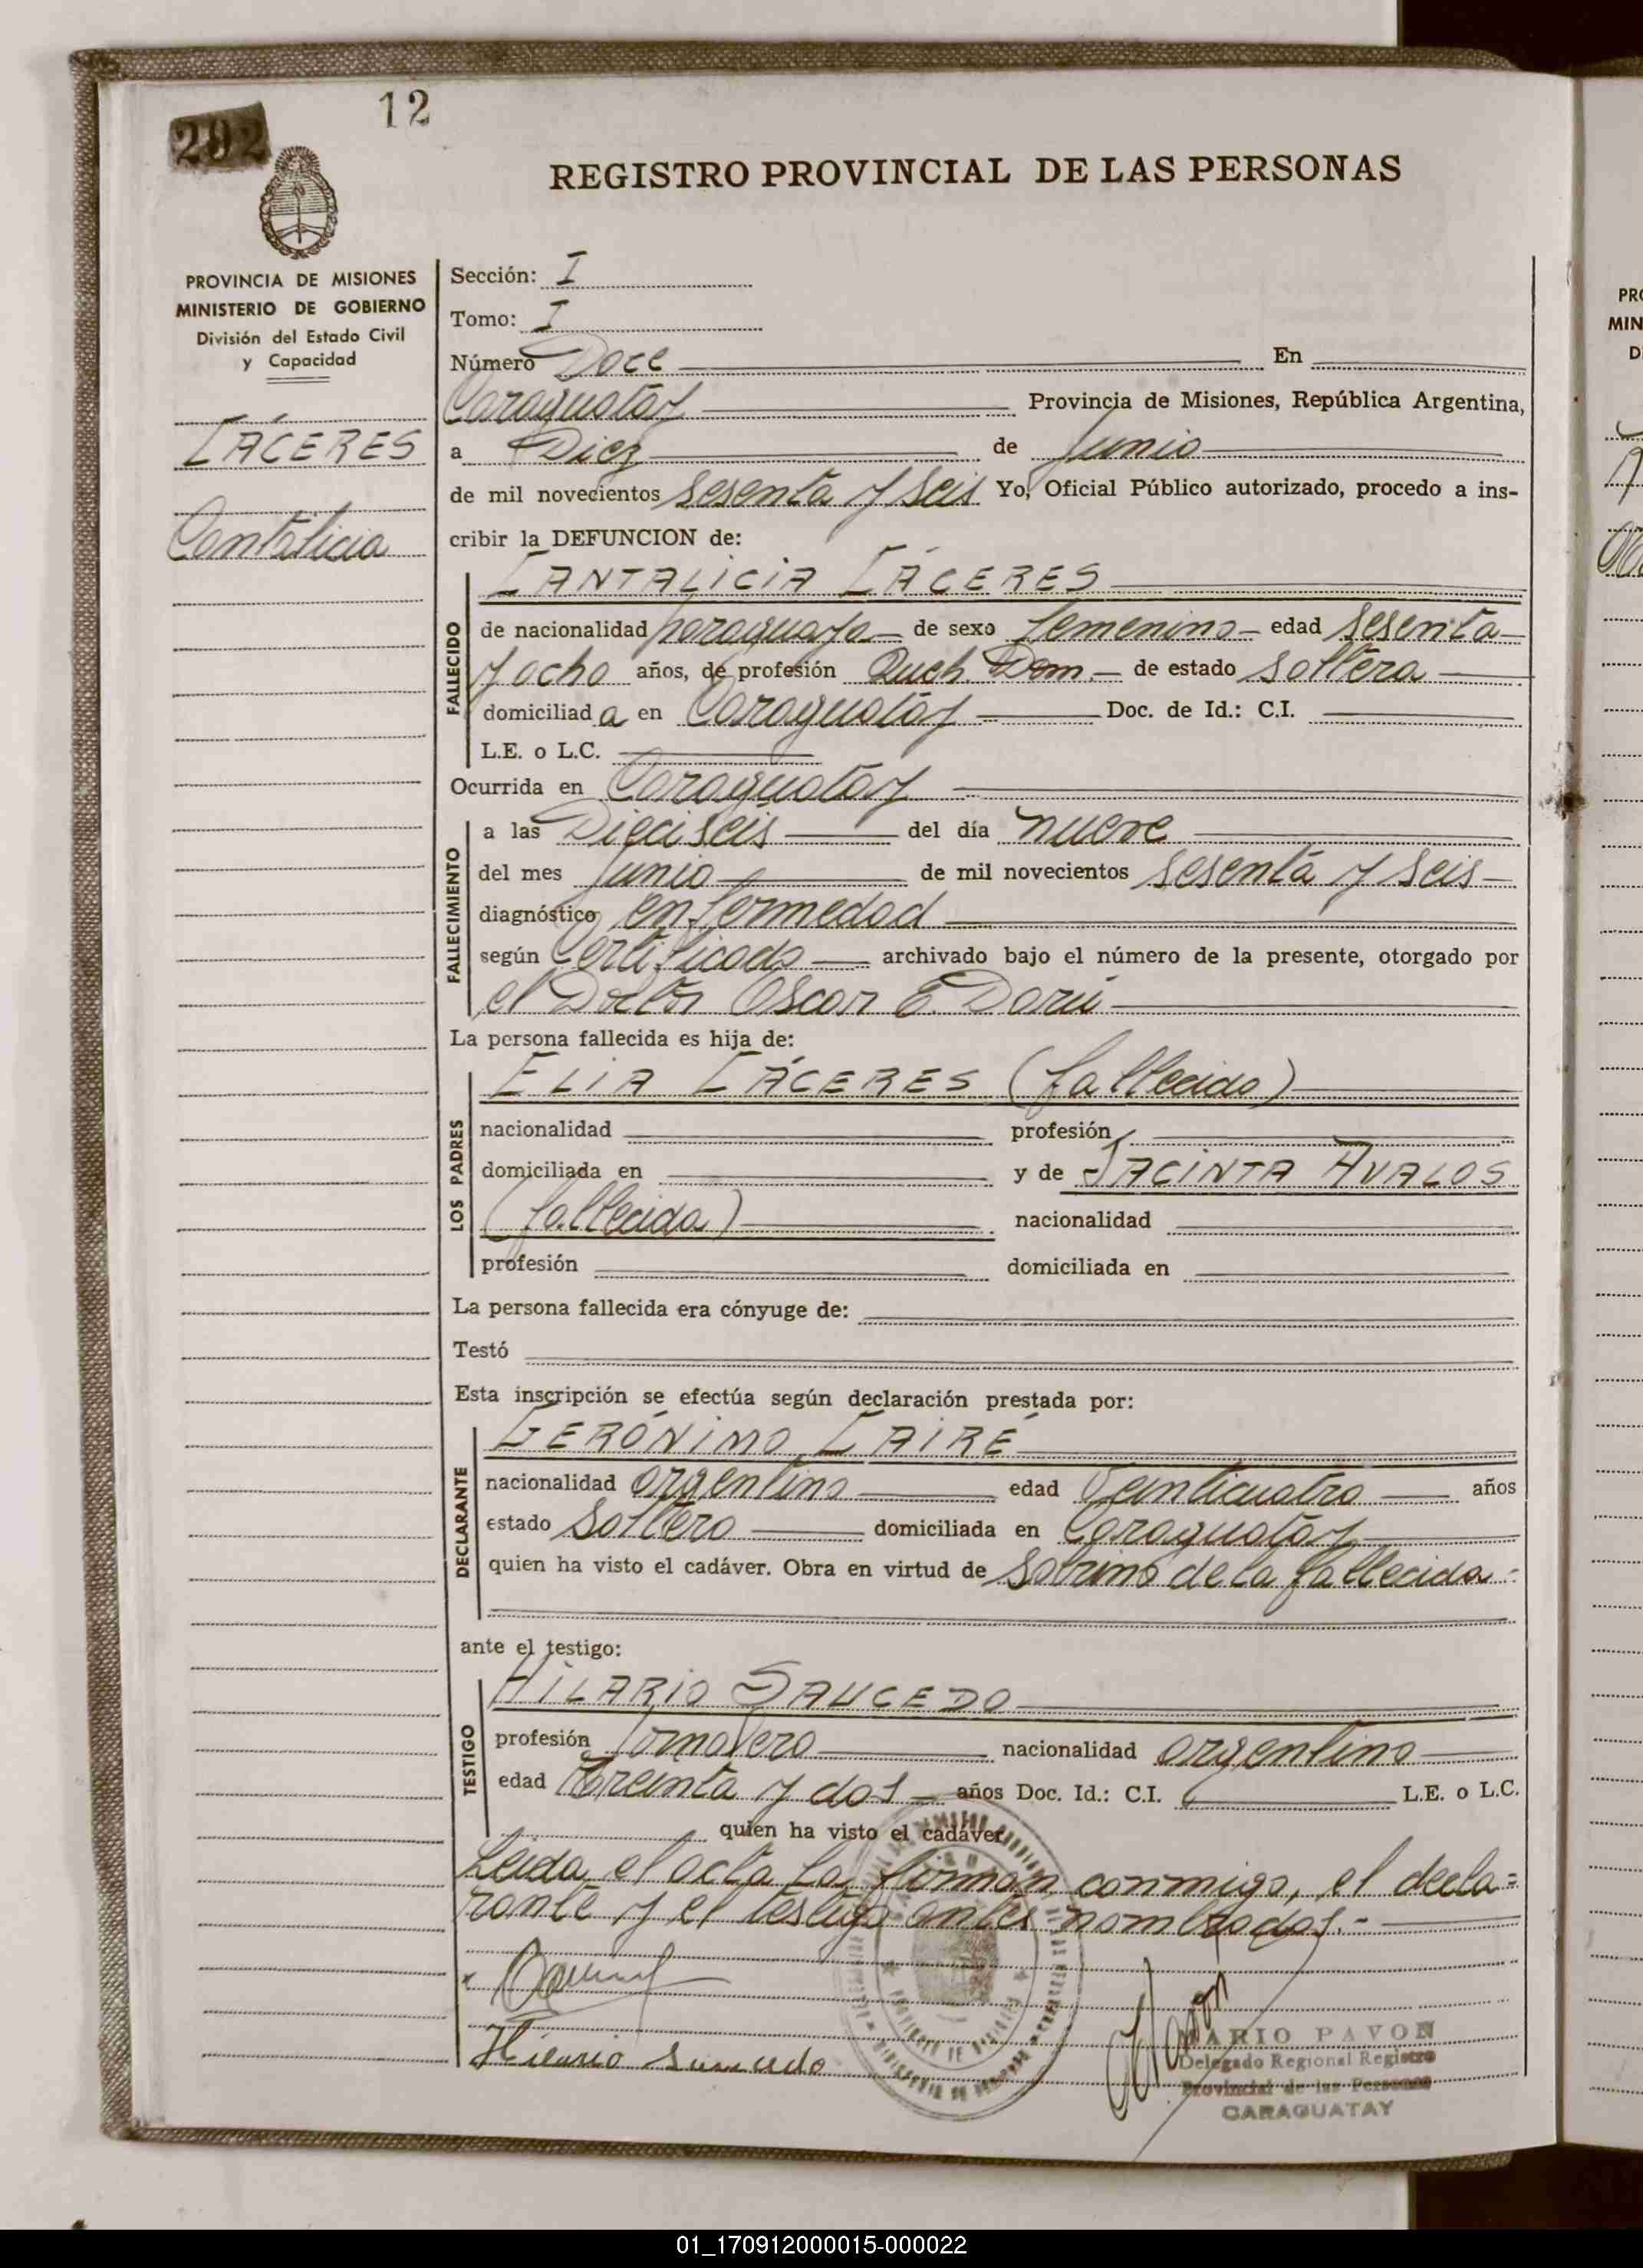 12
292
REGISTRO PROVINCIAL DE LAS PERSONAS
PROVINCIA DE MISIONES
MINISTERIO DE GOBIERNO
División del Estado Civil
y Capacidad
CÁCERES
Cantalicia
Sección: I
Tomo: I
Número Doce En
Caraguatay Provincia de Misiones, República Argentina,
a Diez de Junio
de mil novecientos sesenta y seis Yo, Oficial Público autorizado, procedo a ins-
cribir la DEFUNCION de:
CANTALICIA CÁCERES
FALLECIDO
de nacionalidad paraguaya de sexo femenino edad sesenta
y ocho años, de profesión Queh. Dom. de estado soltera
domiciliad a en Caraguatay Doc. de Id.: C.I.
L.E. o L.C.
Ocurrida en Caraguatay
FALLECIMIENTO
a las Dieciseis del día nueve
del mes junio de mil novecientos sesenta y seis
diagnóstico enfermedad
según Certificado archivado bajo el número de la presente, otorgado por
el Doctor Oscar E. Doru
La persona fallecida es hija de:
ELIA CÁCERES (fallecido)
LOS PADRES
nacionalidad profesión
domiciliada en y de JACINTA AVALOS
(fallecida) nacionalidad
profesión domiciliada en
La persona fallecida era cónyuge de:
Testó
Esta inscripción se efectúa según declaración prestada por:
GERÓNIMO CAIRÉ
DECLARANTE
nacionalidad argentino edad Veinticuatro años
estado Soltero domiciliada en Caraguatay
quien ha visto el cadáver. Obra en virtud de sobrino de la fallecida.-
ante el testigo:
HILARIO SAUCEDO
TESTIGO
profesión Jornalero nacionalidad argentino
edad Treinta y dos años Doc. Id.: C.I. L.E. o L.C.
quien ha visto el cadáver
Leída el acta la firman conmigo, el decla=
rante y el testigo antes nombrados.-
Hilario Saucedo
MARIO PAVON
Delegado Regional Registro
Provincial de las Personas
CARAGUATAY
01_170912000015-000022